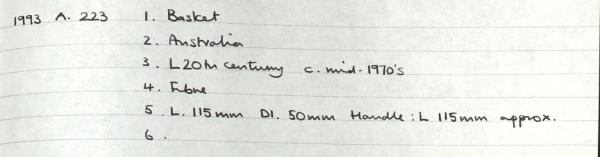 1993 A. 223 1. Basket
2. Australia
3. L20th century c. mid-1970's
4. Fibre
5. L. 115mm DI. 50mm Handle: L 115mm approx.
6.